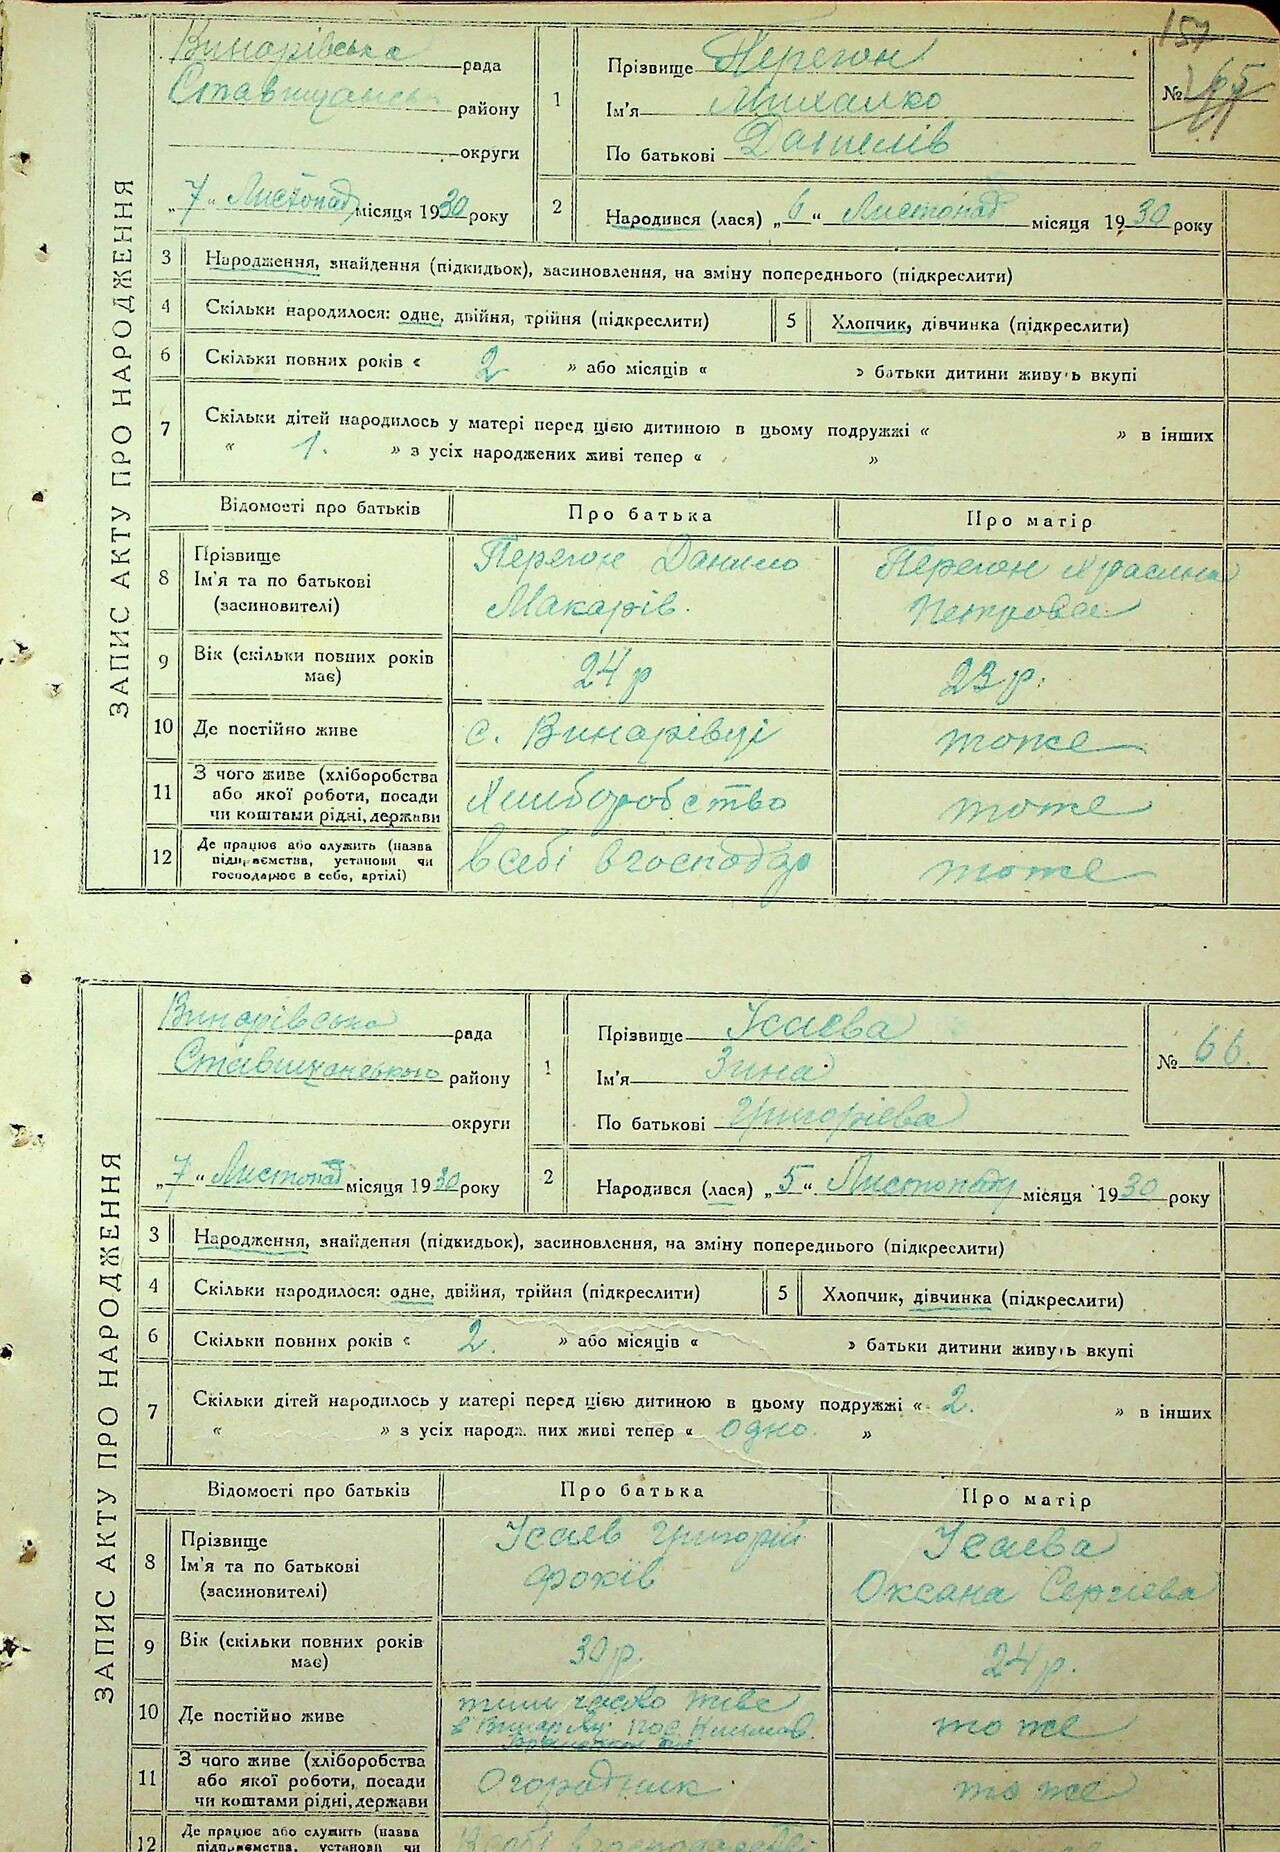 157
ЗАПИС АКТУ ПРО НАРОДЖЕННЯ
Винарівська рада
Ставищанськ району
округи
„7“ Листопад місяця 1930 року
1
Прізвище Перегон
Ім'я Михалко
По батькові Данилів
№ 65
2
Народився (лася) „6“ Листопад місяця 1930 року
3 Народження, знайдення (підкидьок), засиновлення, на зміну попереднього (підкреслити)
4 Скільки народилося: одне, двійня, трійня (підкреслити) 5 Хлопчик, дівчинка (підкреслити)
6 Скільки повних років « 2 » або місяців « » батьки дитини живуть вкупі
7 Скільки дітей народилось у матері перед цією дитиною в цьому подружжі « » в інших
« 1. » з усіх народжених живі тепер « »
Відомості про батьків Про батька Про матір
8 Прізвище Ім'я та по батькові (засиновителі)
Перегон Данило
Макарів.
Перегон
Петрова
9 Вік (скільки повних років має) 24 р 23 р.
10 Де постійно живе с. Винарівці тоже
11 З чого живе (хліборобства або якої роботи, посади чи коштами рідні, держави Хліборобство тоже
12 Де працює або служить (назва підприємства, установи чи господарює в себе, артілі) в себі в господар тоже
ЗАПИС АКТУ ПРО НАРОДЖЕННЯ
Винарівська рада
Ставищанського району
округи
„7“ Листопад місяця 1930 року
1
Прізвище Усаєва
Ім'я Зина
По батькові Григорієва
№ 66.
2
Народився (лася) „5“ Листопаду місяця 1930 року
3 Народження, знайдення (підкидьок), засиновлення, на зміну попереднього (підкреслити)
4 Скільки народилося: одне, двійня, трійня (підкреслити) 5 Хлопчик, дівчинка (підкреслити)
6 Скільки повних років « 2. » або місяців « » батьки дитини живуть вкупі
7 Скільки дітей народилось у матері перед цією дитиною в цьому подружжі « 2. » в інших
« » з усіх народжених живі тепер « одно. »
Відомості про батьків Про батька Про матір
8 Прізвище Ім'я та по батькові (засиновителі)
Усаєв Григорій
Фоків
Усаєва
Оксана Сергієва
9 Вік (скільки повних років має) 30 р. 24 р.
10 Де постійно живе живе тоже
11 З чого живе (хліборобства або якої роботи, посади чи коштами рідні, держави Огородник тоже
12 Де працює або служить (назва підприємства, установи чи